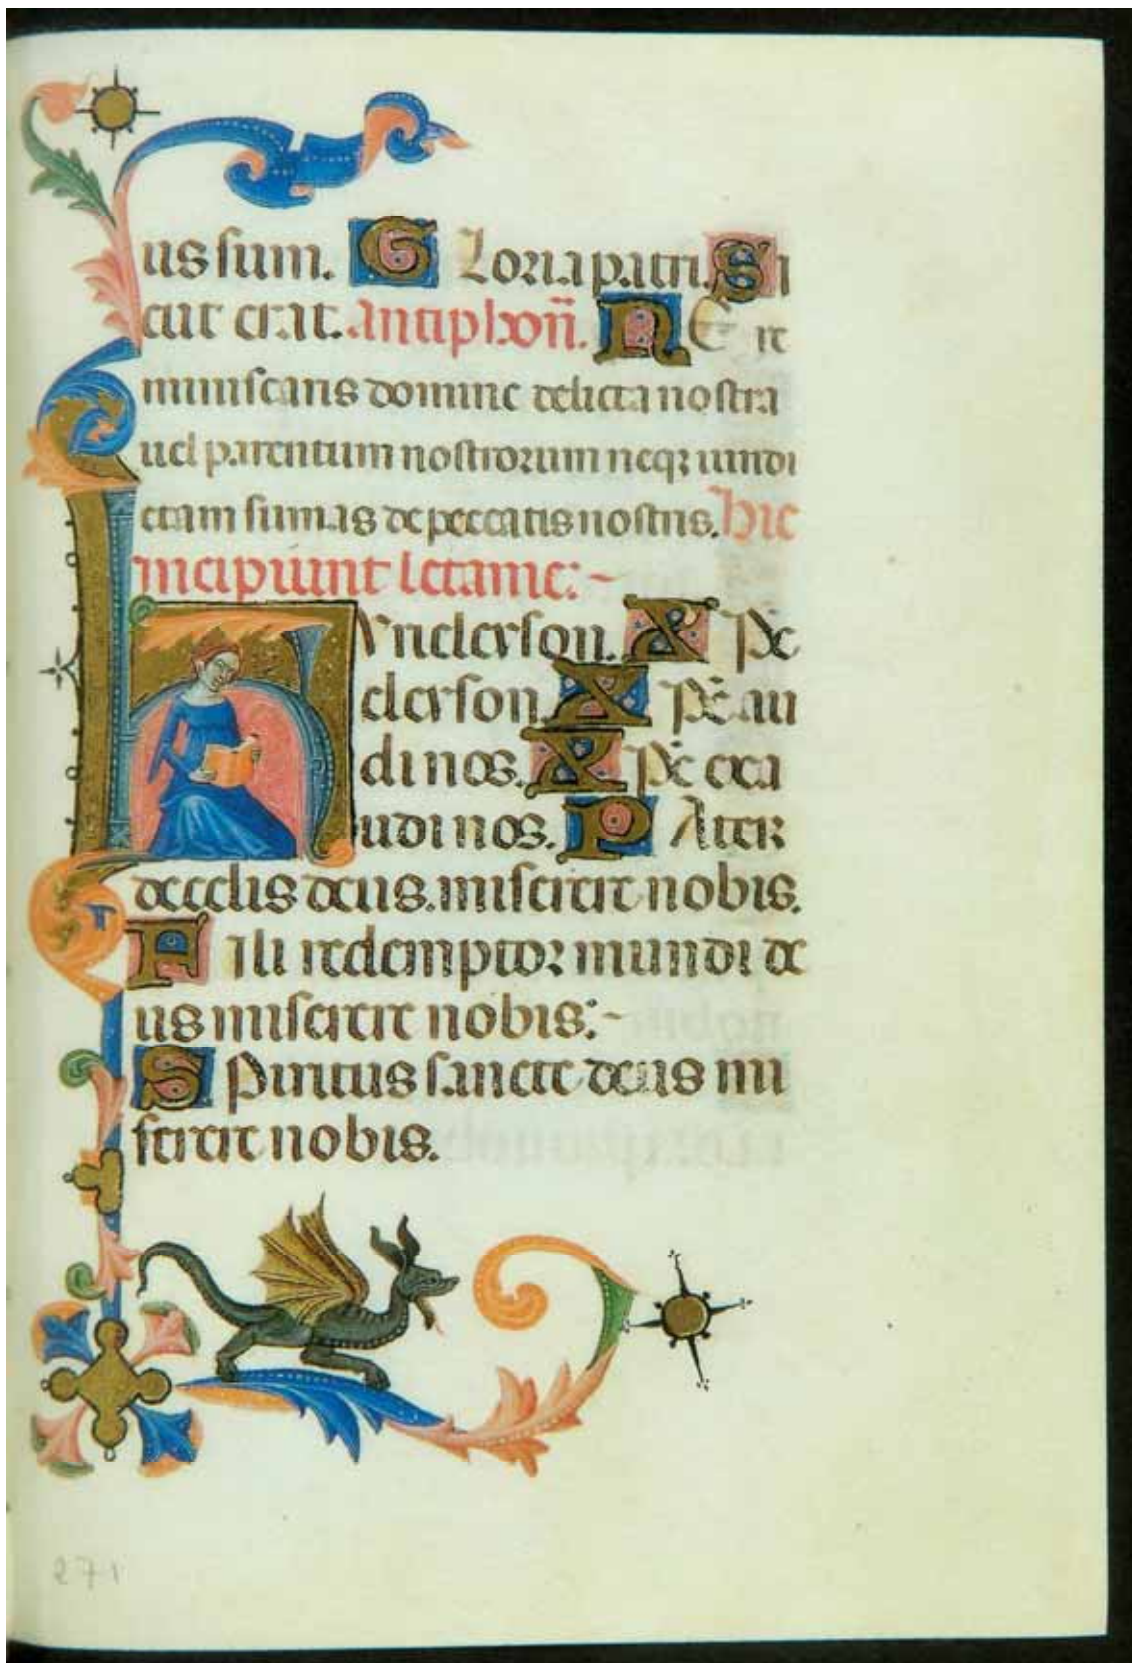 us sum. Gloria patri. Si
cut erat. antiphon̄. NE re
miniscaris domine delicta nostra
uel parentum nostrorum neqꝫ uindi
ctam sumas de peccatis nostris. hic
incipiunt letanie:~
kyrieleyson. XPE
eleyson. XPE au
di nos. XPE exa
udi nos. PAteR
de celis deus. miserere nobis.
Fili redemptor mundi de
us miserere nobis:~
Spiritus sancte deus mi
serere nobis.
271